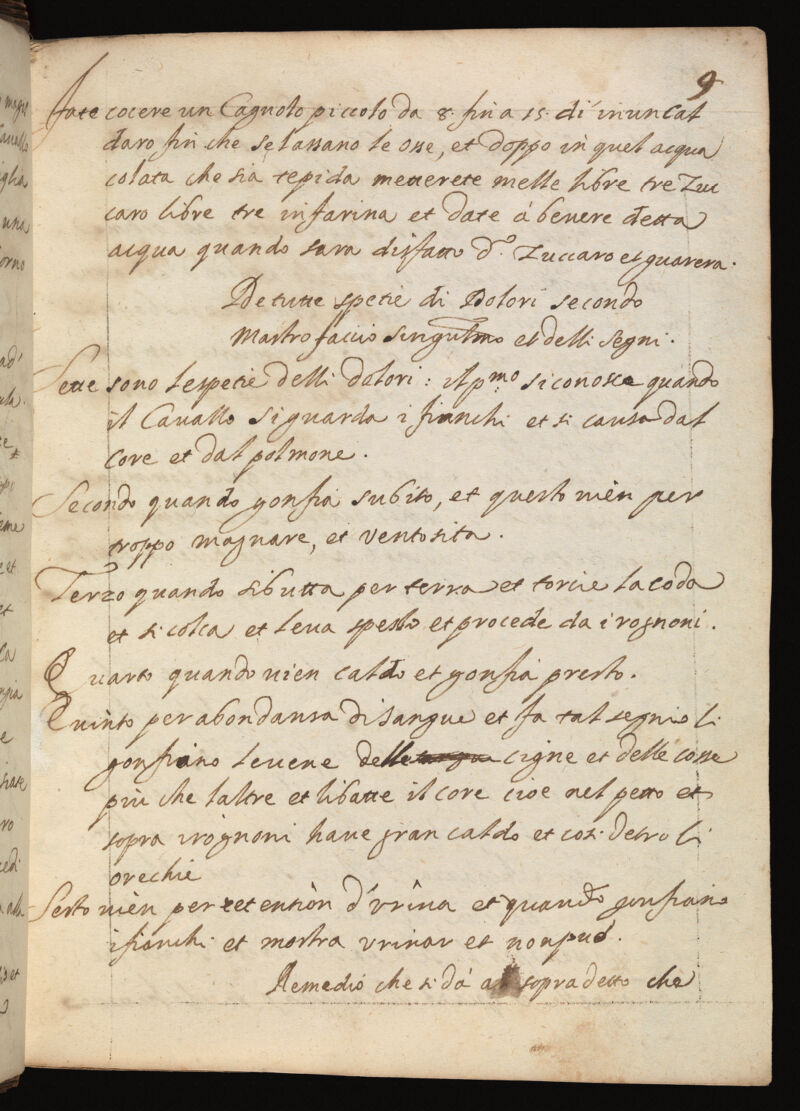 9
fate cocere un Cagnolo piccolo da 8. fin a 15. di in un cal
daro fin che se lassano le osse, et doppo in quel acqua
colata che sia tepida metterete melle libre tre Zuc
caro libre tre in farina et date à bevere detta
acqua quando sara disfatto d.º Zuccaro et guarera.
De tutte spetie di Dolori secondo
Mastro faccio et delli segni.
Sette sono le spetie delli dolori: il p.mo si conosce quando
il Cavallo si guarda i fianchi et si causa dal
core et dal polmone.
Secondo quando gonfia subito, et questo vièn per
troppo magnare, et ventosita.
Terzo quando si butta per terra et torcie la coda
et si colca et leva spesso et procede da i rognoni.
Quarto quando vien caldo et gonfia presto.
Quinto per abondansa di sangue et fa tal segnio li
gonfiano le vene delle cigne et delle cosse
più che laltre et li batte il core cioe nel petto et
sopra i rognoni have gran caldo et così detro li
orechie
Sesto vièn per retentiòn d'vrina et quando gonfiano
i fianchi et mostra vrinar et non può.
Remedio che si dà al sopradetto che